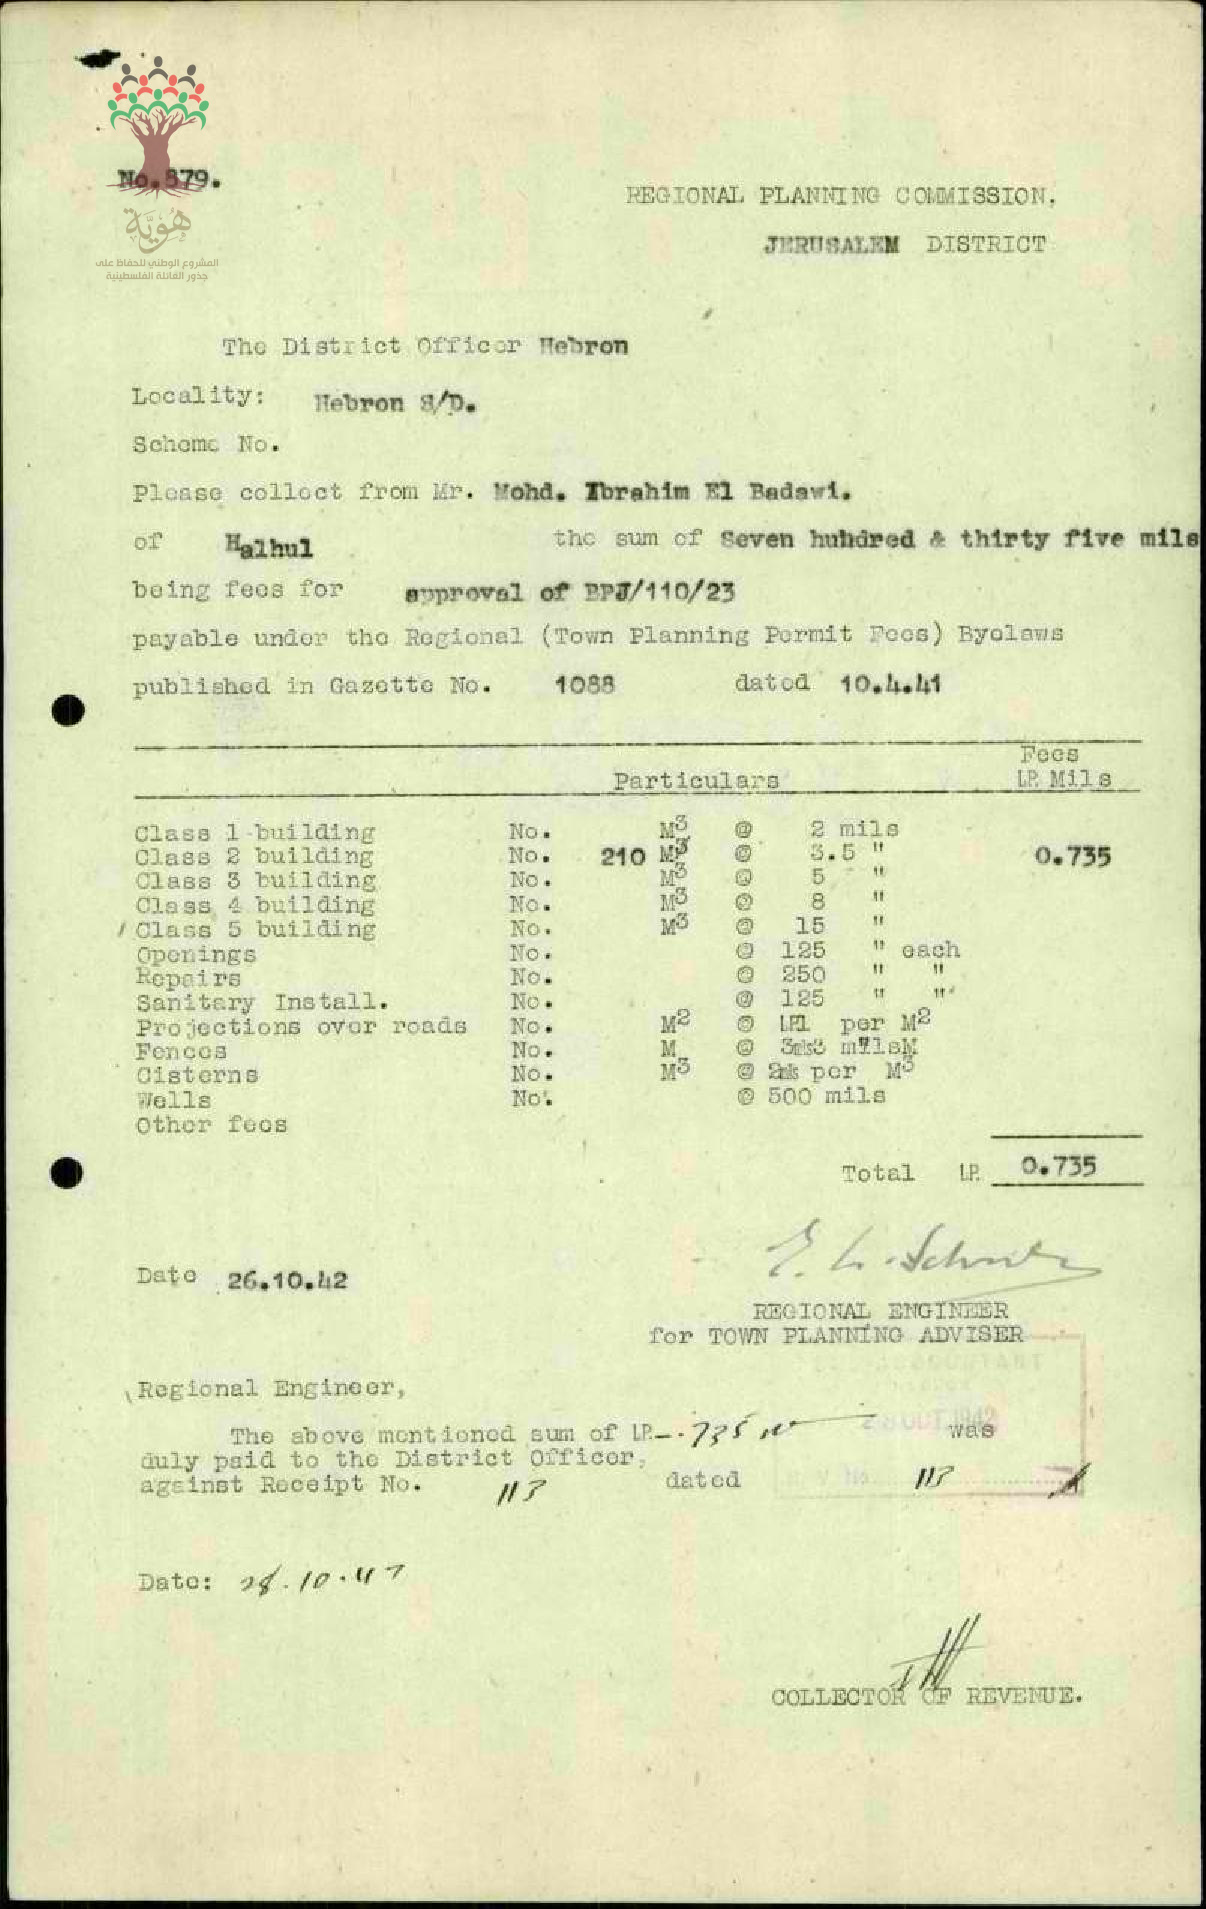 No.879.
هُوِيَّة
المشروع الوطني للحفاظ على
جذور العائلة الفلسطينية
REGIONAL PLANNING COMMISSION.
JERUSALEM DISTRICT
The District Officer Hebron
Locality: Hebron S/D.
Scheme No.
Please collect from Mr. Mohd. Ibrahim El Badawi.
of Halhul the sum of Seven huhdred & thirty five mils
being fees for approval of BPJ/110/23
payable under the Regional (Town Planning Permit Fees) Byelaws
published in Gazette No. 1088 dated 10.4.41
Fees
Particulars LP. Mils
Class 1 building No. M3 @ 2 mils
Class 2 building No. 210 M3 @ 3.5 " 0.735
Class 3 building No. M3 @ 5 "
Class 4 building No. M3 @ 8 "
Class 5 building No. M3 @ 15 "
Openings No. @ 125 " each
Repairs No. @ 250 " "
Sanitary Install. No. @ 125 " "
Projections over roads No. M2 @ LP1 per M2
Fences No. M @ mils M
Cisterns No. M3 @ per M3
Wells No. @ 500 mils
Other fees
Total LP. 0.735
Date 26.10.42
REGIONAL ENGINEER
for TOWN PLANNING ADVISER
Regional Engineer,
28 OCT 1942
The above mentioned sum of LP.-.735 was
duly paid to the District Officer,
against Receipt No. 113 dated 113
Date: 28.10.42
COLLECTOR OF REVENUE.